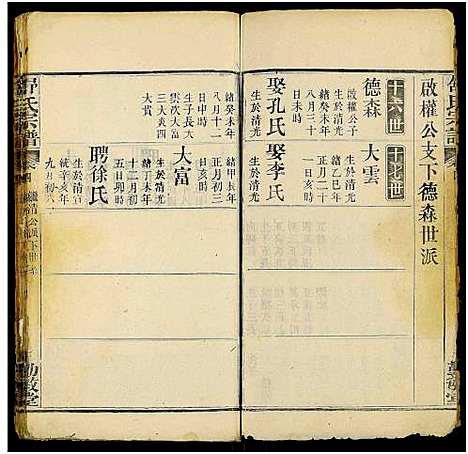 啟權公支下德森世派
十六世
十七世
德森
啟權公子
生於清光
緒癸未年
八月三十
日未時
娶孔氏
生於清光
緒癸未年
八月十二
日申時
生子長大
雲次大富
三大炎四
大貫
大雲
生於清光
緒乙巳年
正月二十
一日亥時
娶李氏
生於清光
緒甲辰年
正月初三
日亥時
大富
生於清光
緒丁未年
十二月初
五日卯時
聘徐氏
生於清宣
統辛亥年
九月初六
氏宗譜